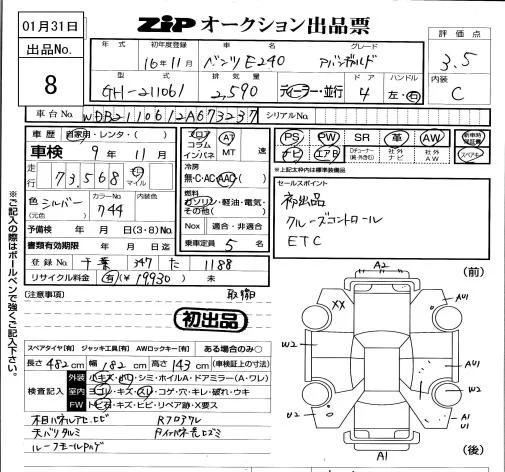 01月31日
出品No.
8
ZiP オークション出品票
評価点
3.5
内装
C
年式 初年度登録 車名 グレード
16年11月 ベンツE240 アバンギャルド
型式 排気量 ドア ハンドル
GH-211061 2,590 ディーラー・並行 4 左・右
車台No. WDB2110612A673237 シリアルNo.
車歴 自家用・レンタ・( )
車検 9年11月
走行 73,568 キロ マイル
色 シルバー (元色) カラーNo. 744 内装色
予備検 年 月 日(3・8)No.
書類有効期限 年 月 日迄
登録No. 千葉 347 た 1188
リサイクル料金 有(¥19930) 未
フロア コラム インパネ AT MT 速
冷房
無・C・AC・AAC
燃料
ガソリン・軽油・電気・その他( )
Nox 適合・非適合
乗車定員 5名
PS PW SR 革 AW 新車時保証書
ナビ エアB 社外ナビ 社外AW スペアキー
※上記太枠内は標準装備品
セールスポイント
初出品
クルーズコントロール
ETC
※ご記入の際はボールペンで強くご記入下さい。
(注意事項)
初出品
スペアタイヤ[有] ジャッキ工具[有] AWロックキー[有] ある場合のみ○
長さ482cm 幅182cm 高さ143cm (車検証上の寸法)
検査記入
外装 小キズ・凹・シミ・ホイルA・ドアミラー(A・ワレ)
室内 ヨゴレ・キズ・スレ・コゲ・穴・キレ・破れ・ウキ
FW トビ石・キズ・ヒビ・リペア跡・X要ス
木目パネルアセ、ヒビ
天バリタルミ
(前)
A2
XX
AU1
W2
AU1
W2
U2
A1
U1
A1
(後)